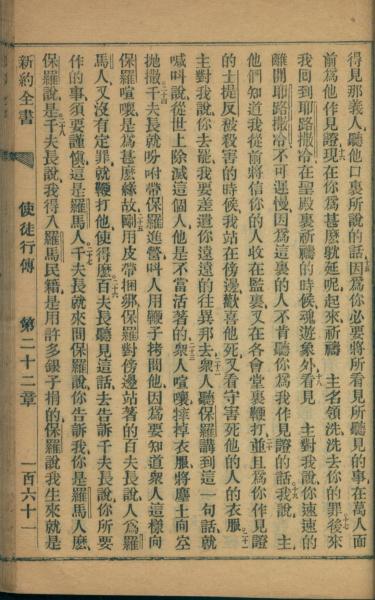 得見那義人聽他口裏所說的話因爲你必要將所看見所聽見的事在萬人面
前爲他作見證現在你爲甚麼躭延呢起來祈禱 主名領洗洗去你的罪後來
我回到耶路撒冷在聖殿裏祈禱的時候魂遊象外看見 主對我說你速速的
離開耶路撒冷不可遲慢因爲這裏的人不肯聽你爲我作見證的話我說 主
他們知道我從前將信你的人收在監裏又在各會堂裏鞭打並且爲你作見證
的士提反被殺害的時候我站在傍邊歡喜他死又看守害死他的人的衣服
主對我說你去罷我要差遣你遠遠的往異邦去衆人聽保羅講到這一句話就
喊叫說從世上除滅這個人他是不當活著的衆人喧嚷摔掉衣服將塵土向空
拋撒千夫長就吩咐帶保羅進營叫人用鞭子拷問他因爲要知道衆人這樣向
保羅喧嚷是爲甚麼緣故剛用皮帶捆綁保羅對傍邊站著的百夫長說人爲羅
馬人又沒有定罪就鞭打他使得麼百夫長聽見這話去告訴千夫長說你所要
作的事須要謹愼這是羅馬人千夫長就來問保羅說你告訴我你是羅馬人麽
保羅說是千夫長說我得入羅馬民籍是用許多銀子捐的保羅說我生來就是
新約全書 使徒行傳 第二十二章 一百六十一